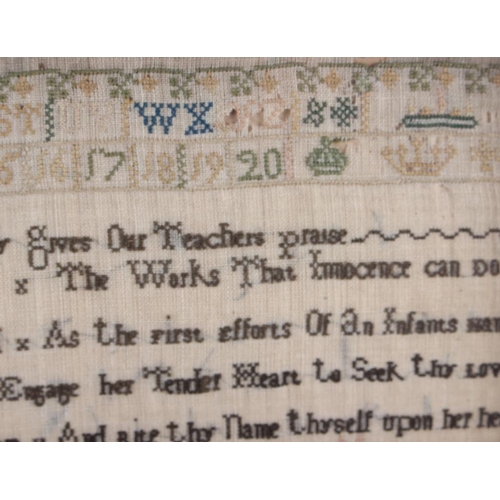 ST WX &
16 17 18 19 20
gives Our Teachers praise
x The Works That Innocence can Do
x As the first efforts Of An Infants
Engage her Tender Heart to Seek thy
And rite thy Name thyself upon her